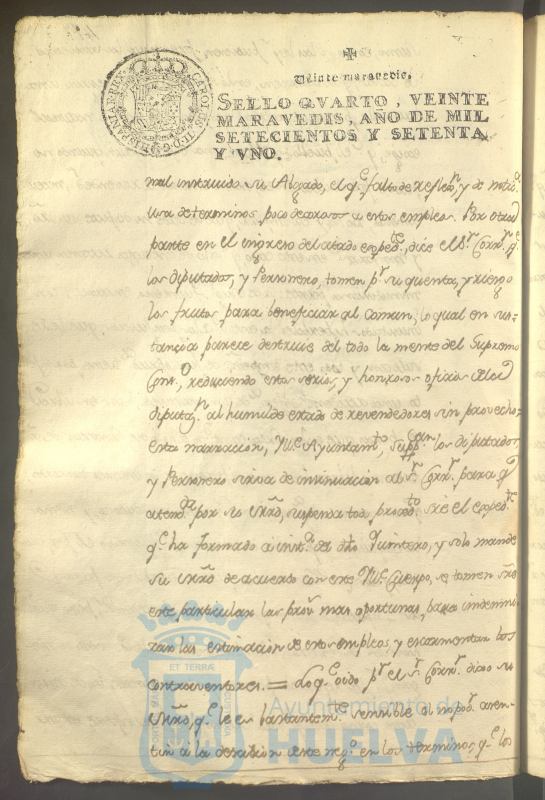 Veinte maravedis.
SELLO QVARTO, VEINTE
MARAVEDIS, AÑO DE MIL
SETECIENTOS Y SETENTA
Y VNO.
mal instruido su Abogado, el qe. falto de reflexn. y de
de terminos poco decorosos a estos empleos. Por otra
parte en el ingreso del citado expedte. dice el Sr. Corrr. qe.
los diputados, y Personero, tomen pr. su quenta, y riesgo
los frutos para beneficiar al Comun, lo qual en sus=
tancia parece destruie del todo la mente del Supremo
Conso. reduciendo estos serios, y honrosos oficios de
diputazn. al humilde estado de revendedores sin provecho
esta narracion, Ille. Ayuntamto. suppcan. los diputados
y Personero sirva de insinuacion al Sr. Corrr. para qe.
por su Mrd. suspenda todo procedto. sre. el expedte.
qe. ha formado a instª. del dho Quintero, y solo mande
su Mrd. de acuerdo con este Ille. Cuerpo, se tomen sre.
este particular las provs. mas oportunas, para indemni=
zar la estimacion de estos empleos, y escarmentar los
contraventores. = Lo qe. oido pr. el Sr. Corrr. dixo su
Mrd. qe. le es bastantemte. sensible el no podr. asen=
tir a la de este nego. en los terminos qe. los
ET TERRÆ
Ayuntamiento de
HUELVA